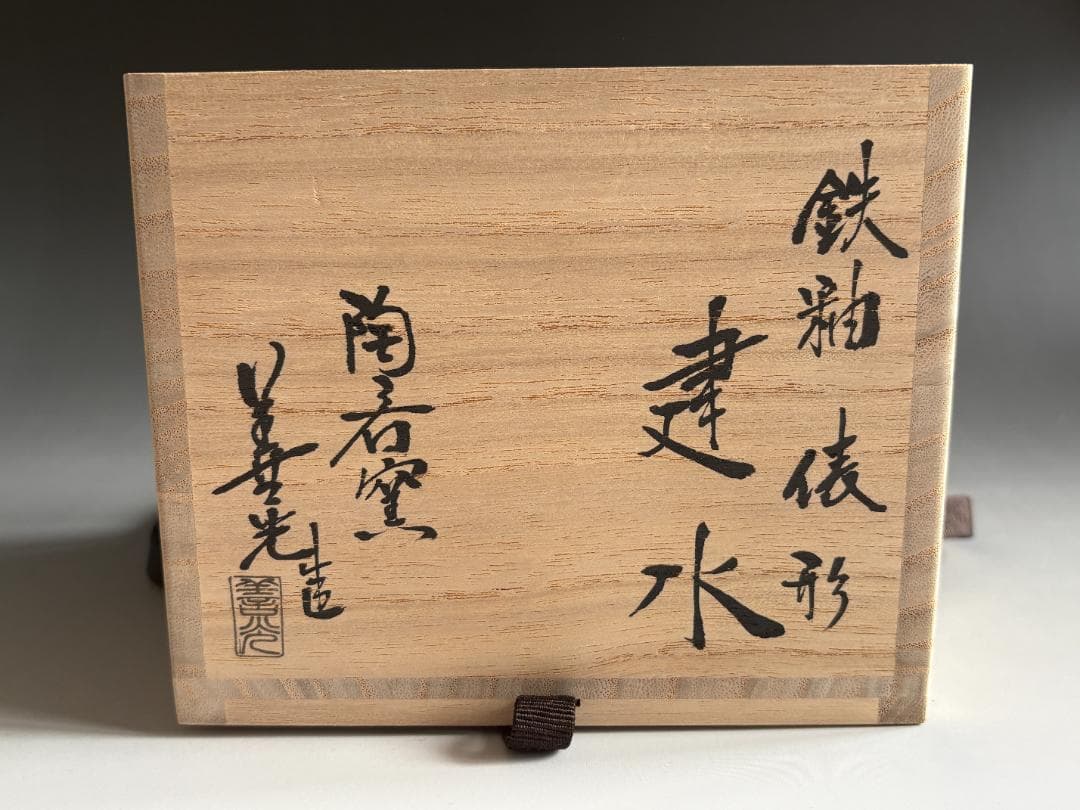 鉄釉 俵形
建水
陶君窯
善光造
善光